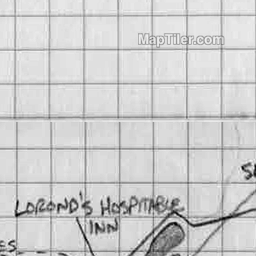 MapTiler.com
LOROND'S HOSPITABLE
INN
ES